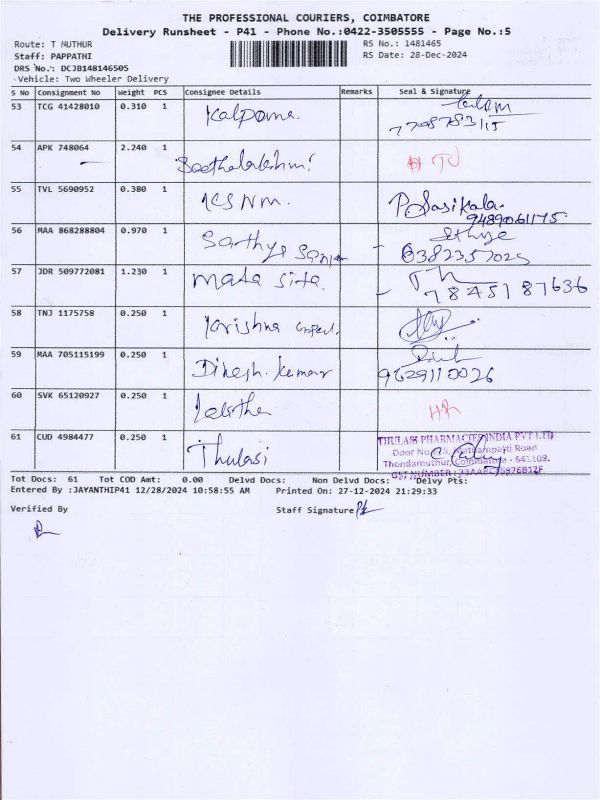 THE PROFESSIONAL COURIERS, COIMBATORE
Delivery Runsheet - P41 - Phone No.:0422-3505555 - Page No.:5
Route: T MUTHUR
RS No.: 1481465
Staff: PAPPATHI
RS Date: 28-Dec-2024
DRS No.: DCJB148146505
Vehicle: Two Wheeler Delivery
S No Consignment No Weight PCS Consignee Details Remarks Seal & Signature
53 TCG 41428010 0.310 1 Kalpana
54 APK 748064 2.240 1 Seethalakshmi
55 TVL 5690952 0.380 1 KSNM. P. Sasikala
9489061175
56 MAA 868288804 0.970 1 Sathya
57 JDR 509772081 1.230 1 Mata Sita.
78451 87636
58 TNJ 1175758 0.250 1 Krishna
59 MAA 705115199 0.250 1 Dinesh. Kumar
9629110026
60 SVK 65120927 0.250 1 Lalitha
61 CUD 4984477 0.250 1 Thulasi THULASI PHARMACIES INDIA PVT LTD
Door No Road
Thondamuthur, Coimbatore - 641109.
GST NUMBER
Tot Docs: 61 Tot COD Amt: 0.00 Delvd Docs: Non Delvd Docs: Delvy Pts:
Entered By :JAYANTHIP41 12/28/2024 10:58:55 AM Printed On: 27-12-2024 21:29:33
Verified By Staff Signature